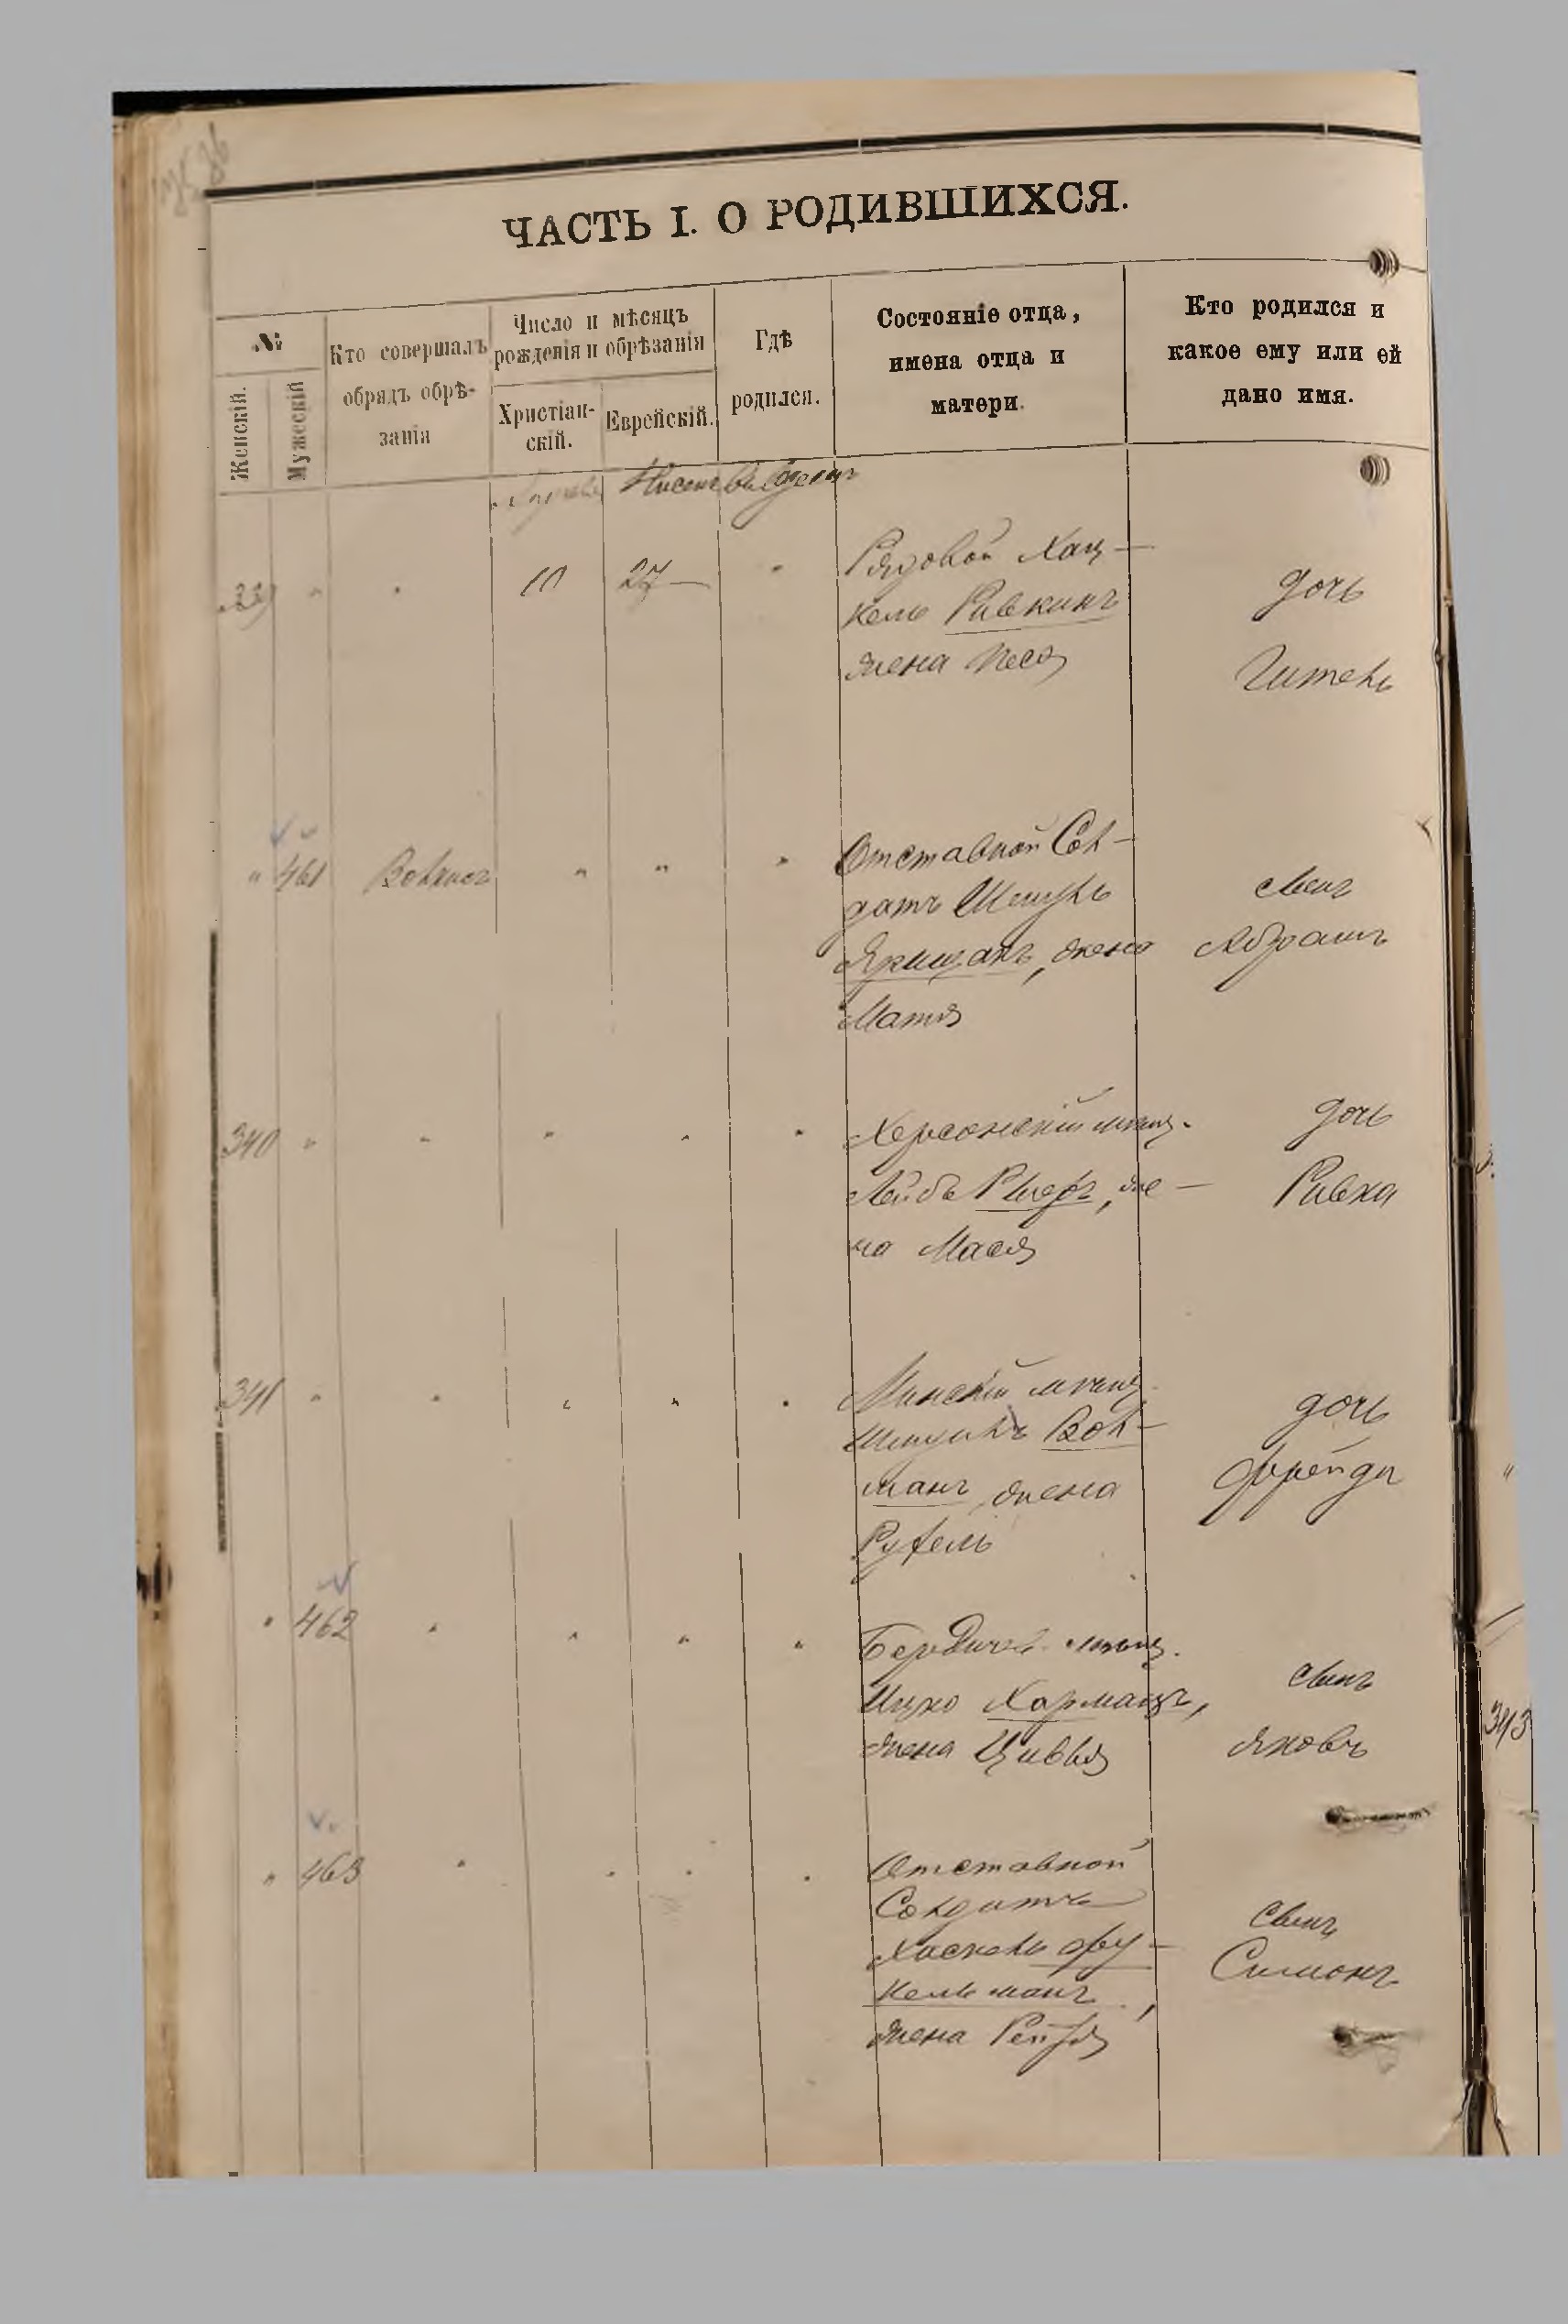 ЧАСТЬ I. О РОДИВШИХСЯ.
№
Женскій.
Мужескій
Кто совершалъ обрядъ обрѣ-
занія
Число и мѣсяцъ
рожденія и обрѣзанія
Христіан-
скій.
Еврейскій.
Гдѣ
родился.
Состояніе отца,
имена отца и
матери.
Кто родился и
какое ему или ей
дано имя.
Нисонъ
339 " " 10 27 "
Рядовой Хац-
кель Ривкинъ
жена Песя
дочь
Гитель
" 461 " " "
Отставной Сол-
датъ
жена
Матля
сынъ
Абрамъ
340 " " " " "
Херсонскій мѣщ.
Лейбъ же-
на Мася
дочь
Ривка
341 " " " " "
Минскій мѣщ.
Вол-
манъ жена
Рухель
дочь
Фрейда
" 462 " " " "
Бердичев. мѣщ.
Ицко
жена Цивья
сынъ
Яковъ
" 463 " " " "
Отставной
Солдатъ
Хаскель Фу-
кельманъ,
жена Рейзя
сынъ
Симонъ
343